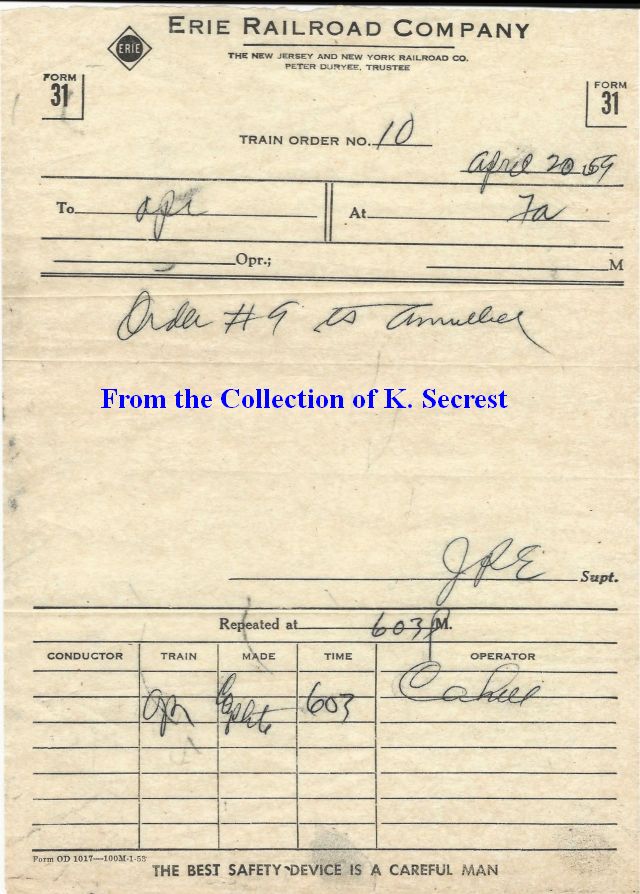 ERIE RAILROAD COMPANY
ERIE
THE NEW JERSEY AND NEW YORK RAILROAD CO.
PETER DURYEE, TRUSTEE
FORM 31
FORM 31
TRAIN ORDER NO. 10
April 20 1959
To opr At
Opr.; M
Order #9 is annulled
From the Collection of K. Secrest
JRE Supt.
Repeated at 603 P M.
CONDUCTOR TRAIN MADE TIME OPERATOR
Opr 603 Cahill
Form OD 1017—100M-1-53
THE BEST SAFETY DEVICE IS A CAREFUL MAN